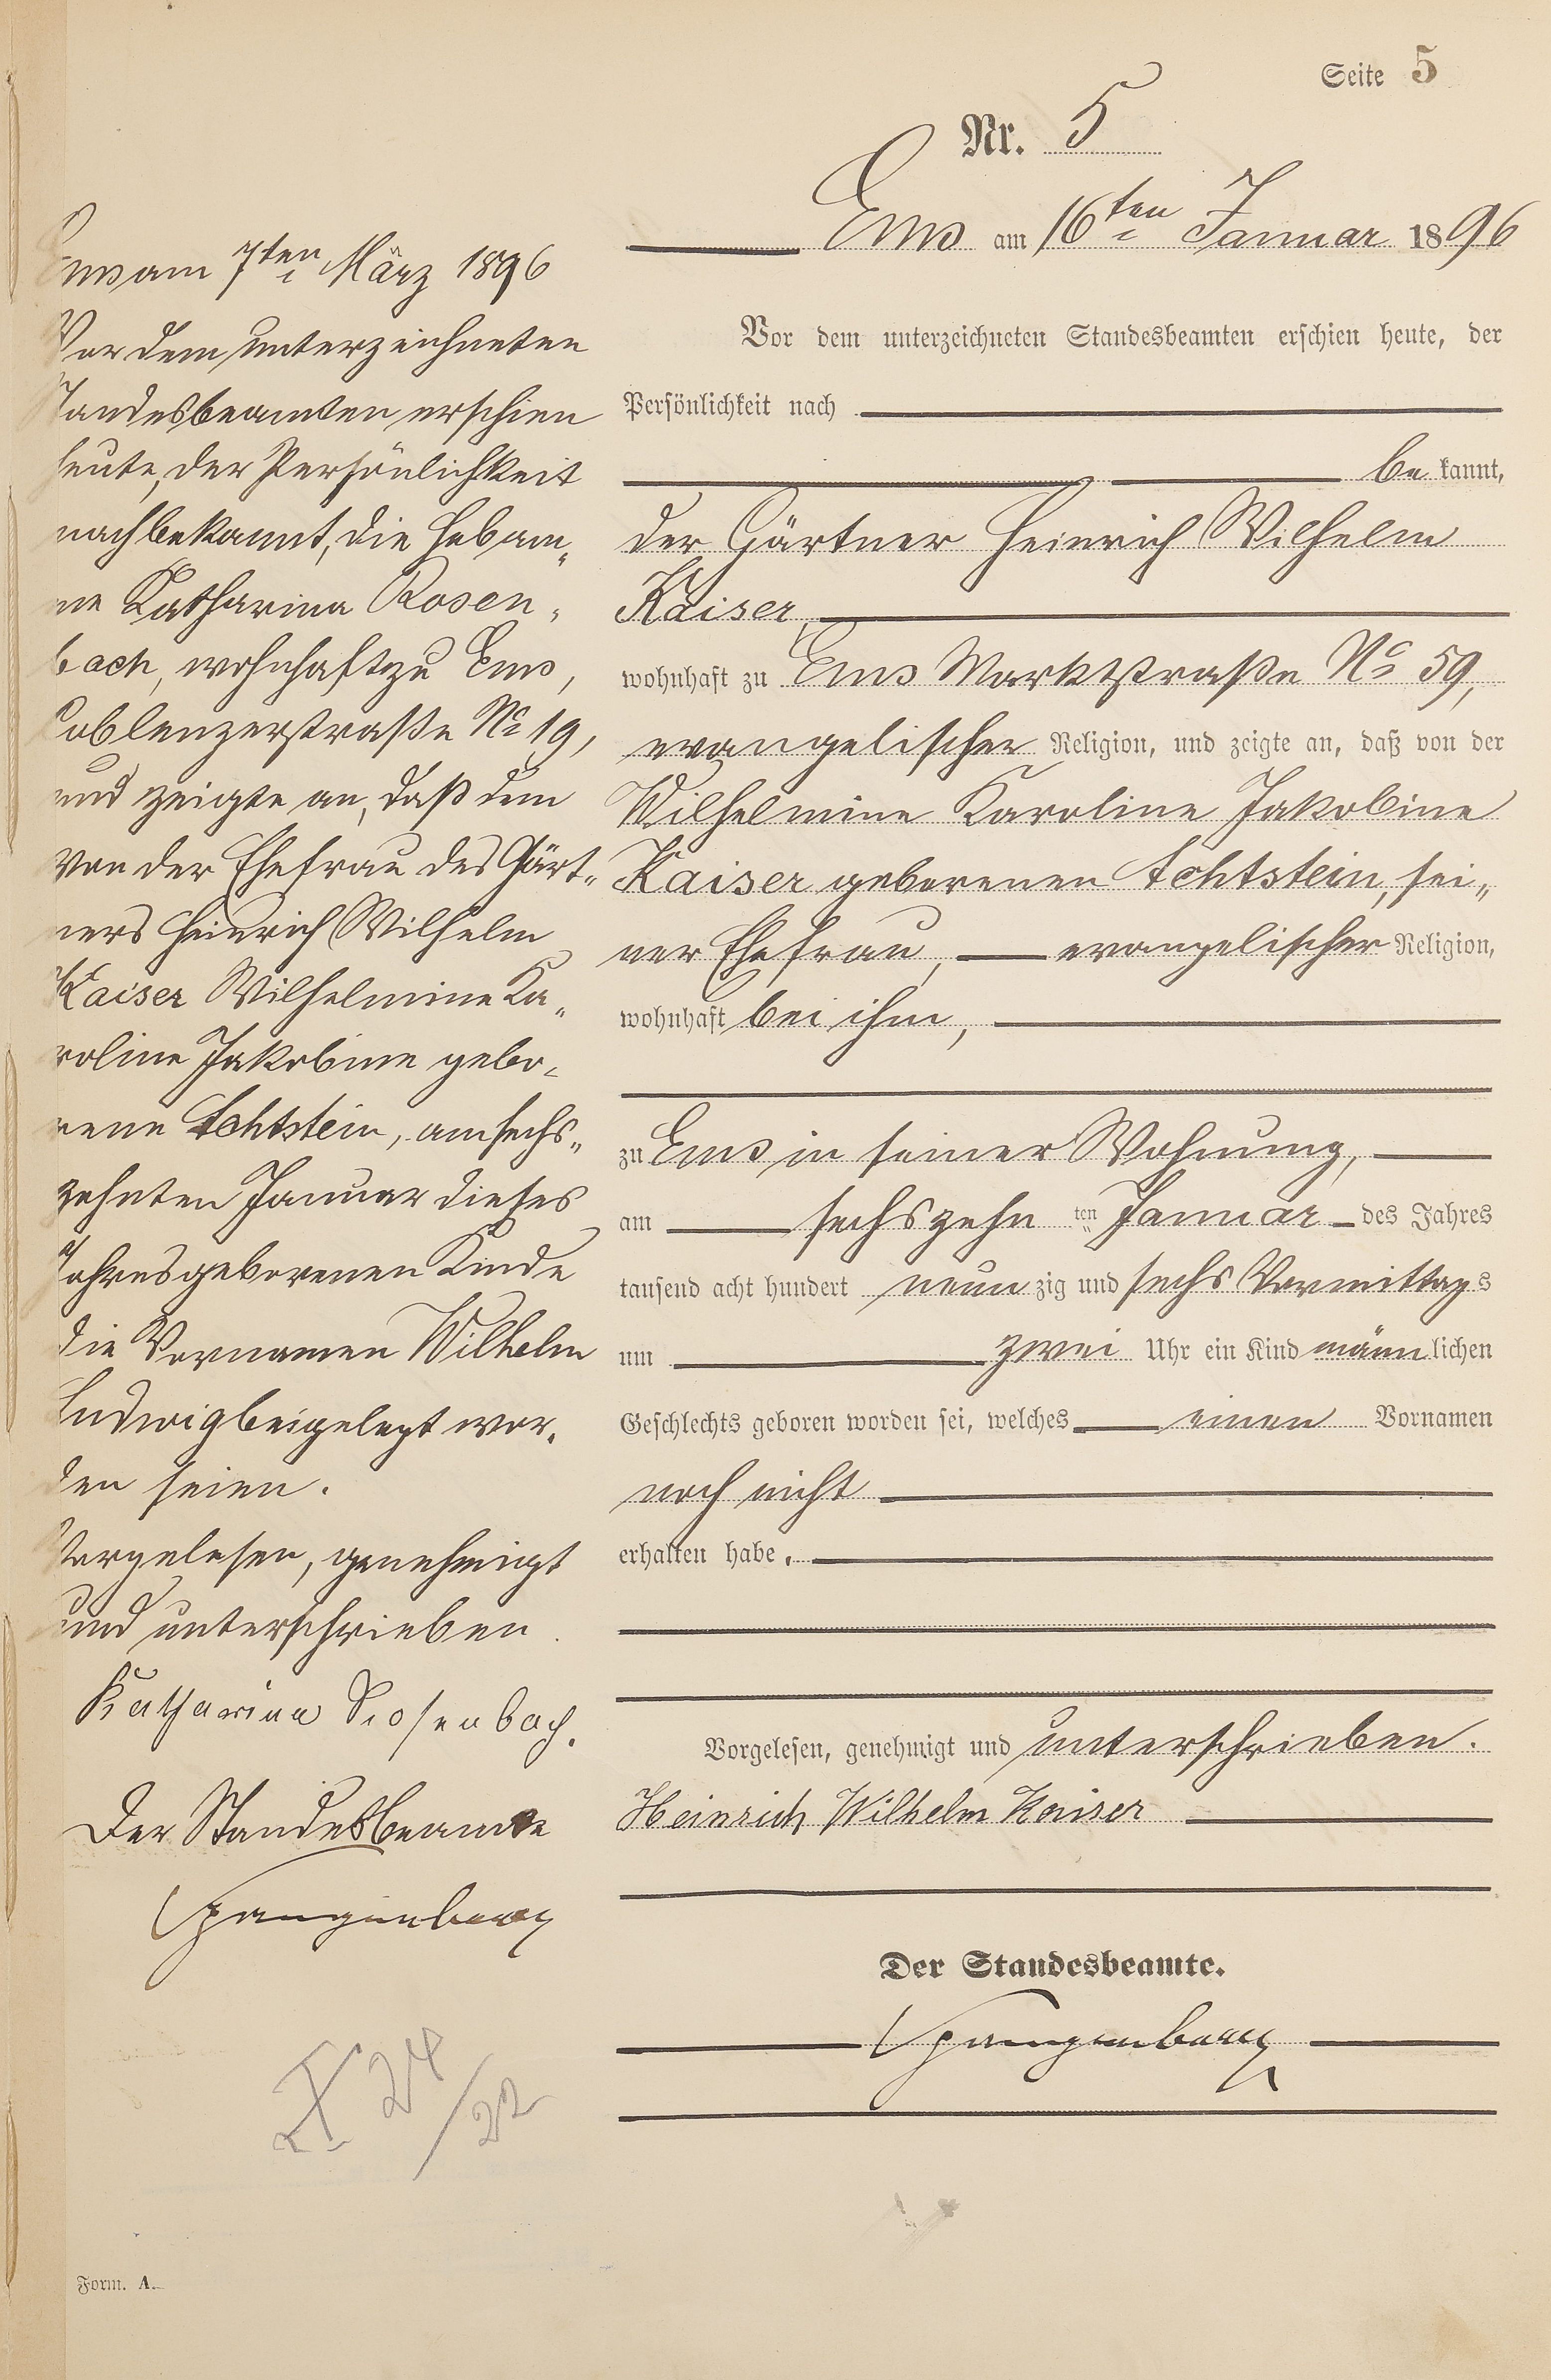 Seite 5
Nr. 5
Ems am 16ten Januar 1896
Vor dem unterzeichneten Standesbeamten erschien heute, der
Persönlichkeit nach
be kannt,
der Gärtner Heinrich Wilhelm
Kaiser,
wohnhaft zu Ems Marktstraße No 59,
evangelischer Religion, und zeigte an, daß von der
Wilhelmine Karoline Jakobine
Kaiser geborenen Echtstein, sei„
ner Ehefrau, evangelischer Religion,
wohnhaft bei ihm,
zu Ems in seiner Wohnung,
am sechszehn ten Januar des Jahres
tausend acht hundert neun zig und sechs Vormittags
um zwei Uhr ein Kind männlichen
Geschlechts geboren worden sei, welches einen Vornamen
noch nicht
erhalten habe.
Vorgelesen, genehmigt und unterschrieben.
Heinrich Wilhelm Kaiser
Der Standesbeamte.
Spangenberg
Ems am 7ten März 1896
Vor dem unterzeichneten
Standesbeamten erschien
heute, der Persönlichkeit
nach bekannt, die Hebam„
me Katharina Rosen„
bach, wohnhaft zu Ems,
Coblenzerstraße No 19,
und zeigte an, daß dem
von der Ehefrau des Gärt„
ners Heinrich Wilhelm
Kaiser Wilhelmine Ka„
roline Jakobine gebo„
rene Echtstein, am sechs„
zehnten Januar dieses
Jahres geborenen Kinde
die Vornamen Wilhelm
Ludwig beigelegt wor„
den seien.
Vorgelesen, genehmigt
und unterschrieben.
Katharina Rosenbach.
Der Standesbeamte
Spangenberg
24/22
Form. A.